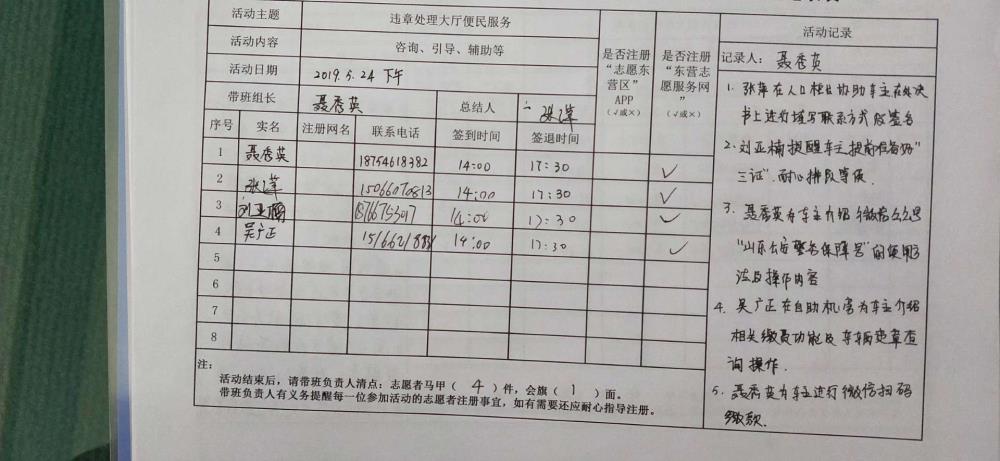 活动主题 违章处理大厅便民服务
活动内容 咨询、引导、辅助等
活动日期 2019.5.24 下午
带班组长 聂秀英 总结人
是否注册“志愿东营区”APP（√或×）
是否注册“东营志愿服务网”（√或×）
序号 实名 注册网名 联系电话 签到时间 签退时间
1 聂秀英 18754618382 14:00 17:30 √
2 15066070813 14:00 17:30 √
3 刘亚楠 14:00 17:30 √
4 吴广正 14:00 17:30 √
5
6
7
8
注：
活动结束后，请带班负责人清点：志愿者马甲（ 4 ）件，会旗（ 1 ）面。
带班负责人有义务提醒每一位参加活动的志愿者注册事宜，如有需要还应耐心指导注册。
活动记录
记录人：聂秀英
1. 张萍在人口柜台协助车主在处决
书上进行填写联系方式及签名
2. 刘亚楠提醒车主提前准备好“
三证”.耐心排队等候.
3. 聂秀英为车主介绍微信公众号
“山东公安警务保障号”的使用方
法及操作内容
4. 吴广正在自助机旁为车主介绍
相关缴费功能及车辆违章查
询操作.
5. 聂秀英为车主进行微信扫码
缴款.